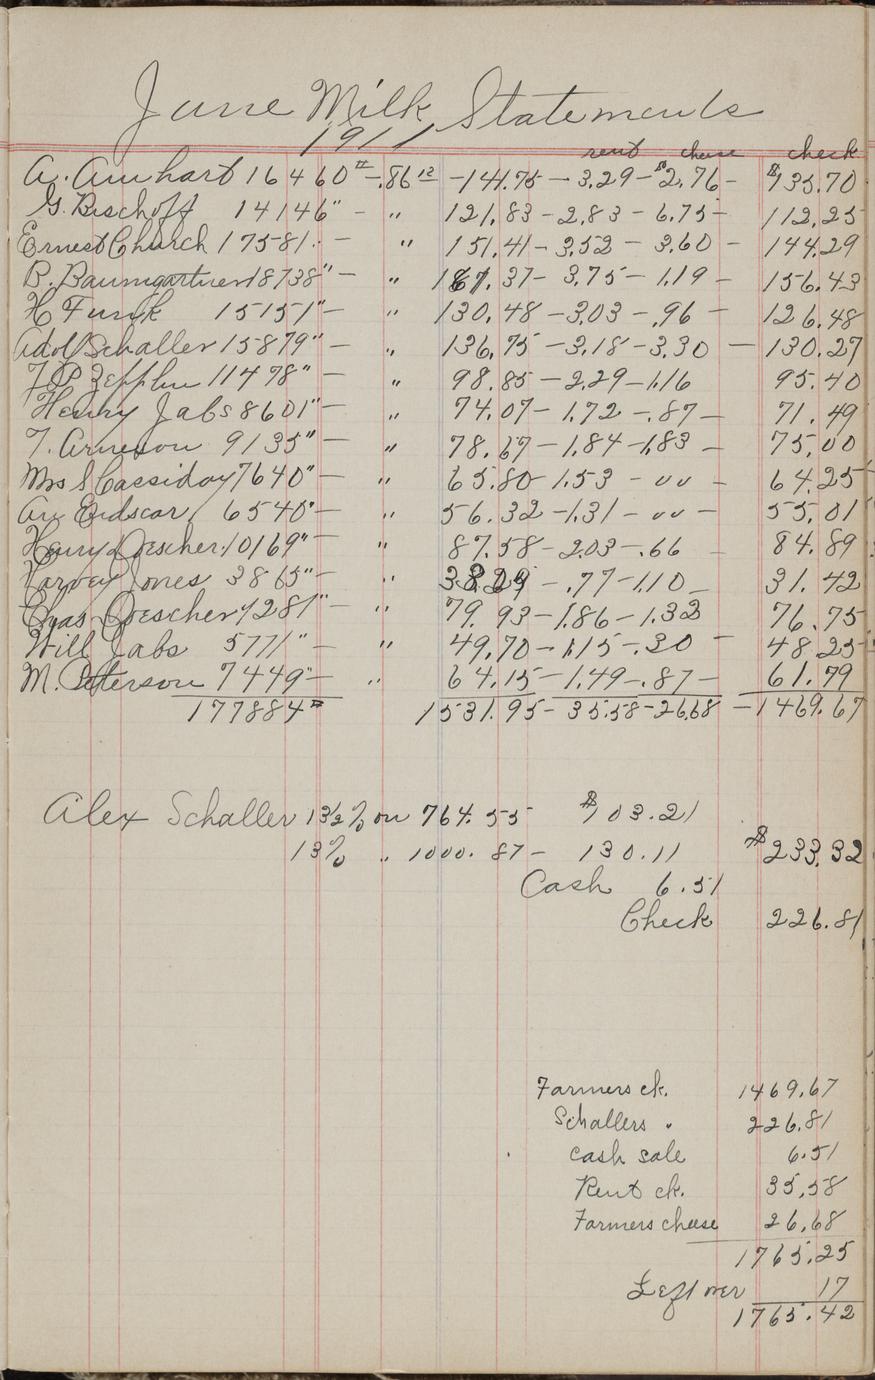 June Milk Statements
1911
rent cheese check
A. Amhart 16460# - .86 12 - 141.75 - 3.29 - $2.76 - $135.70
G. Bischoff 14146" - " 121.83 - 2.83 - 6.75 - 112.25
Ernest Church 17581 - " 151.41 - 3.52 - 3.60 - 144.29
B. Baumgartner 18738" - " 161.37 - 3.75 - 1.19 - 156.43
H Funk 15151" - " 130.48 - 3.03 - .96 - 126.48
Adolf Schaller 15879" - " 136.75 - 3.18 - 3.30 - 130.27
J.P. Zepplin 11478" - " 98.85 - 2.29 - 1.16 95.40
Henry Jabs 8601" - " 74.07 - 1.72 - .87 - 71.49
T. Arneson 9135" - " 78.67 - 1.84 - 1.83 - 75.00
Mrs S Cassiday 7640" - " 65.80 - 1.53 - 00 - 64.25
6540" - " 56.32 - 1.31 - 00 - 55.01
Henry Doescher 10169" - " 87.58 - 2.03 - .66 - 84.89
Harvey Jones 3865" - " 33.29 - .77 - 1.10 - 31.42
Chas Doescher 9281" - " 79.93 - 1.86 - 1.32 76.75
Will Jabs 5771" - " 49.70 - 1.15 - .30 - 48.25
M. Peterson 7449" - " 64.15 - 1.49 - .87 - 61.79
177884# 1531.95 - 35.58 - 26.68 - 1469.67
Alex Schaller 13½% on 764.55 $103.21
13% " 1000.87 - 130.11 $233.32
Cash 6.51
Check 226.81
Farmers ck. 1469.67
Schallers " 226.81
cash sale 6.51
Rent ck. 35.58
Farmers cheese 26.68
1765.25
Left over 17
1765.42